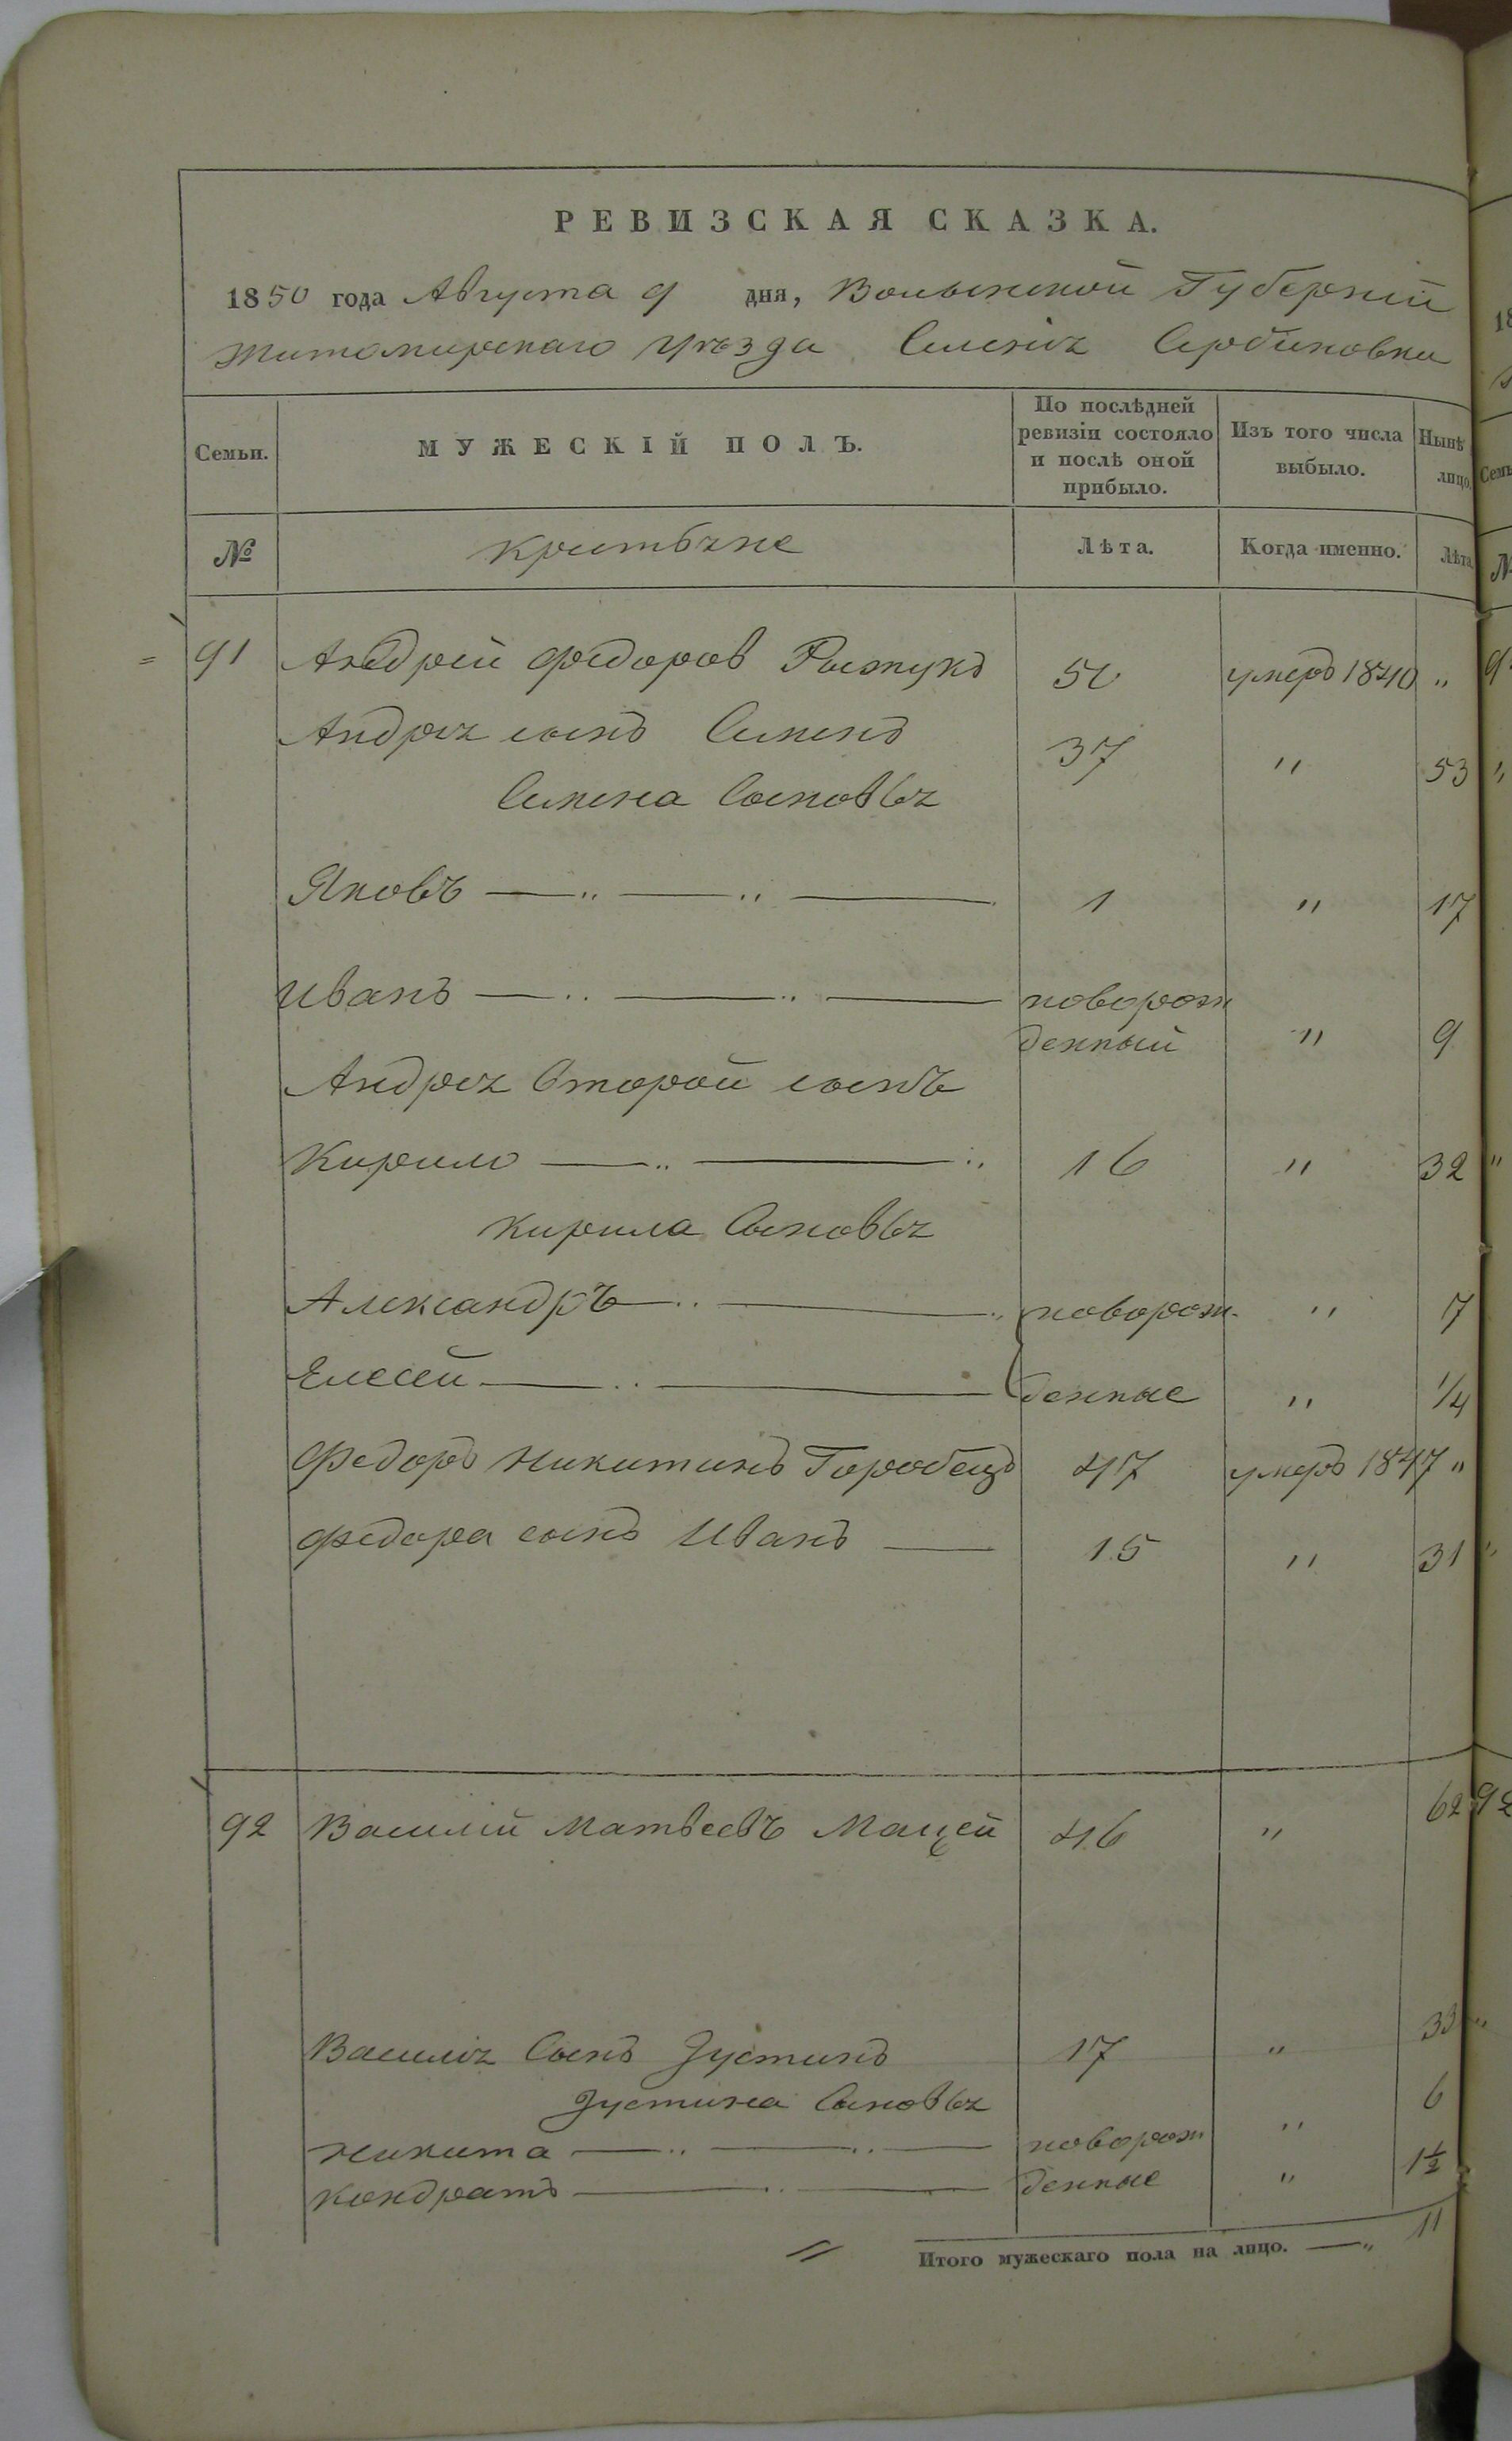 РЕВИЗСКАЯ СКАЗКА.
1850 года Августа 9 дня, Волынской Губерніи
Житомирскаго уѣзда Селенія Сербиновки
Семьи. МУЖЕСКІЙ ПОЛЪ. По послѣдней ревизіи состояло и послѣ оной прибыло. Изъ того числа выбыло. Нынѣ лицо.
№ Крестьяне Лѣта. Когда именно. Лѣта
91 Андрей Федоров 50 умеръ 1840 "
Андрея сынъ Семенъ 37 " 53
Семена Сыновья
Яковъ 1 " 17
Иванъ новорож
денный " 9
Андрея Второй сынъ
Кирило 16 " 32
Кирила Сыновья
Александръ новорож- " 7
Елесей денные " 1/4
Федоръ Никитинъ Горобецъ 47 умеръ 1847 "
Федора сынъ Иванъ 15 " 31
92 Василій Матвеевъ Мацей 46 " 62
Василія Сынъ Іустинъ 17 " 33
Іустина Сыновья
Никита новорож " 6
Кондратъ денные " 1 1/2
Итого мужескаго пола на лицо. " 11